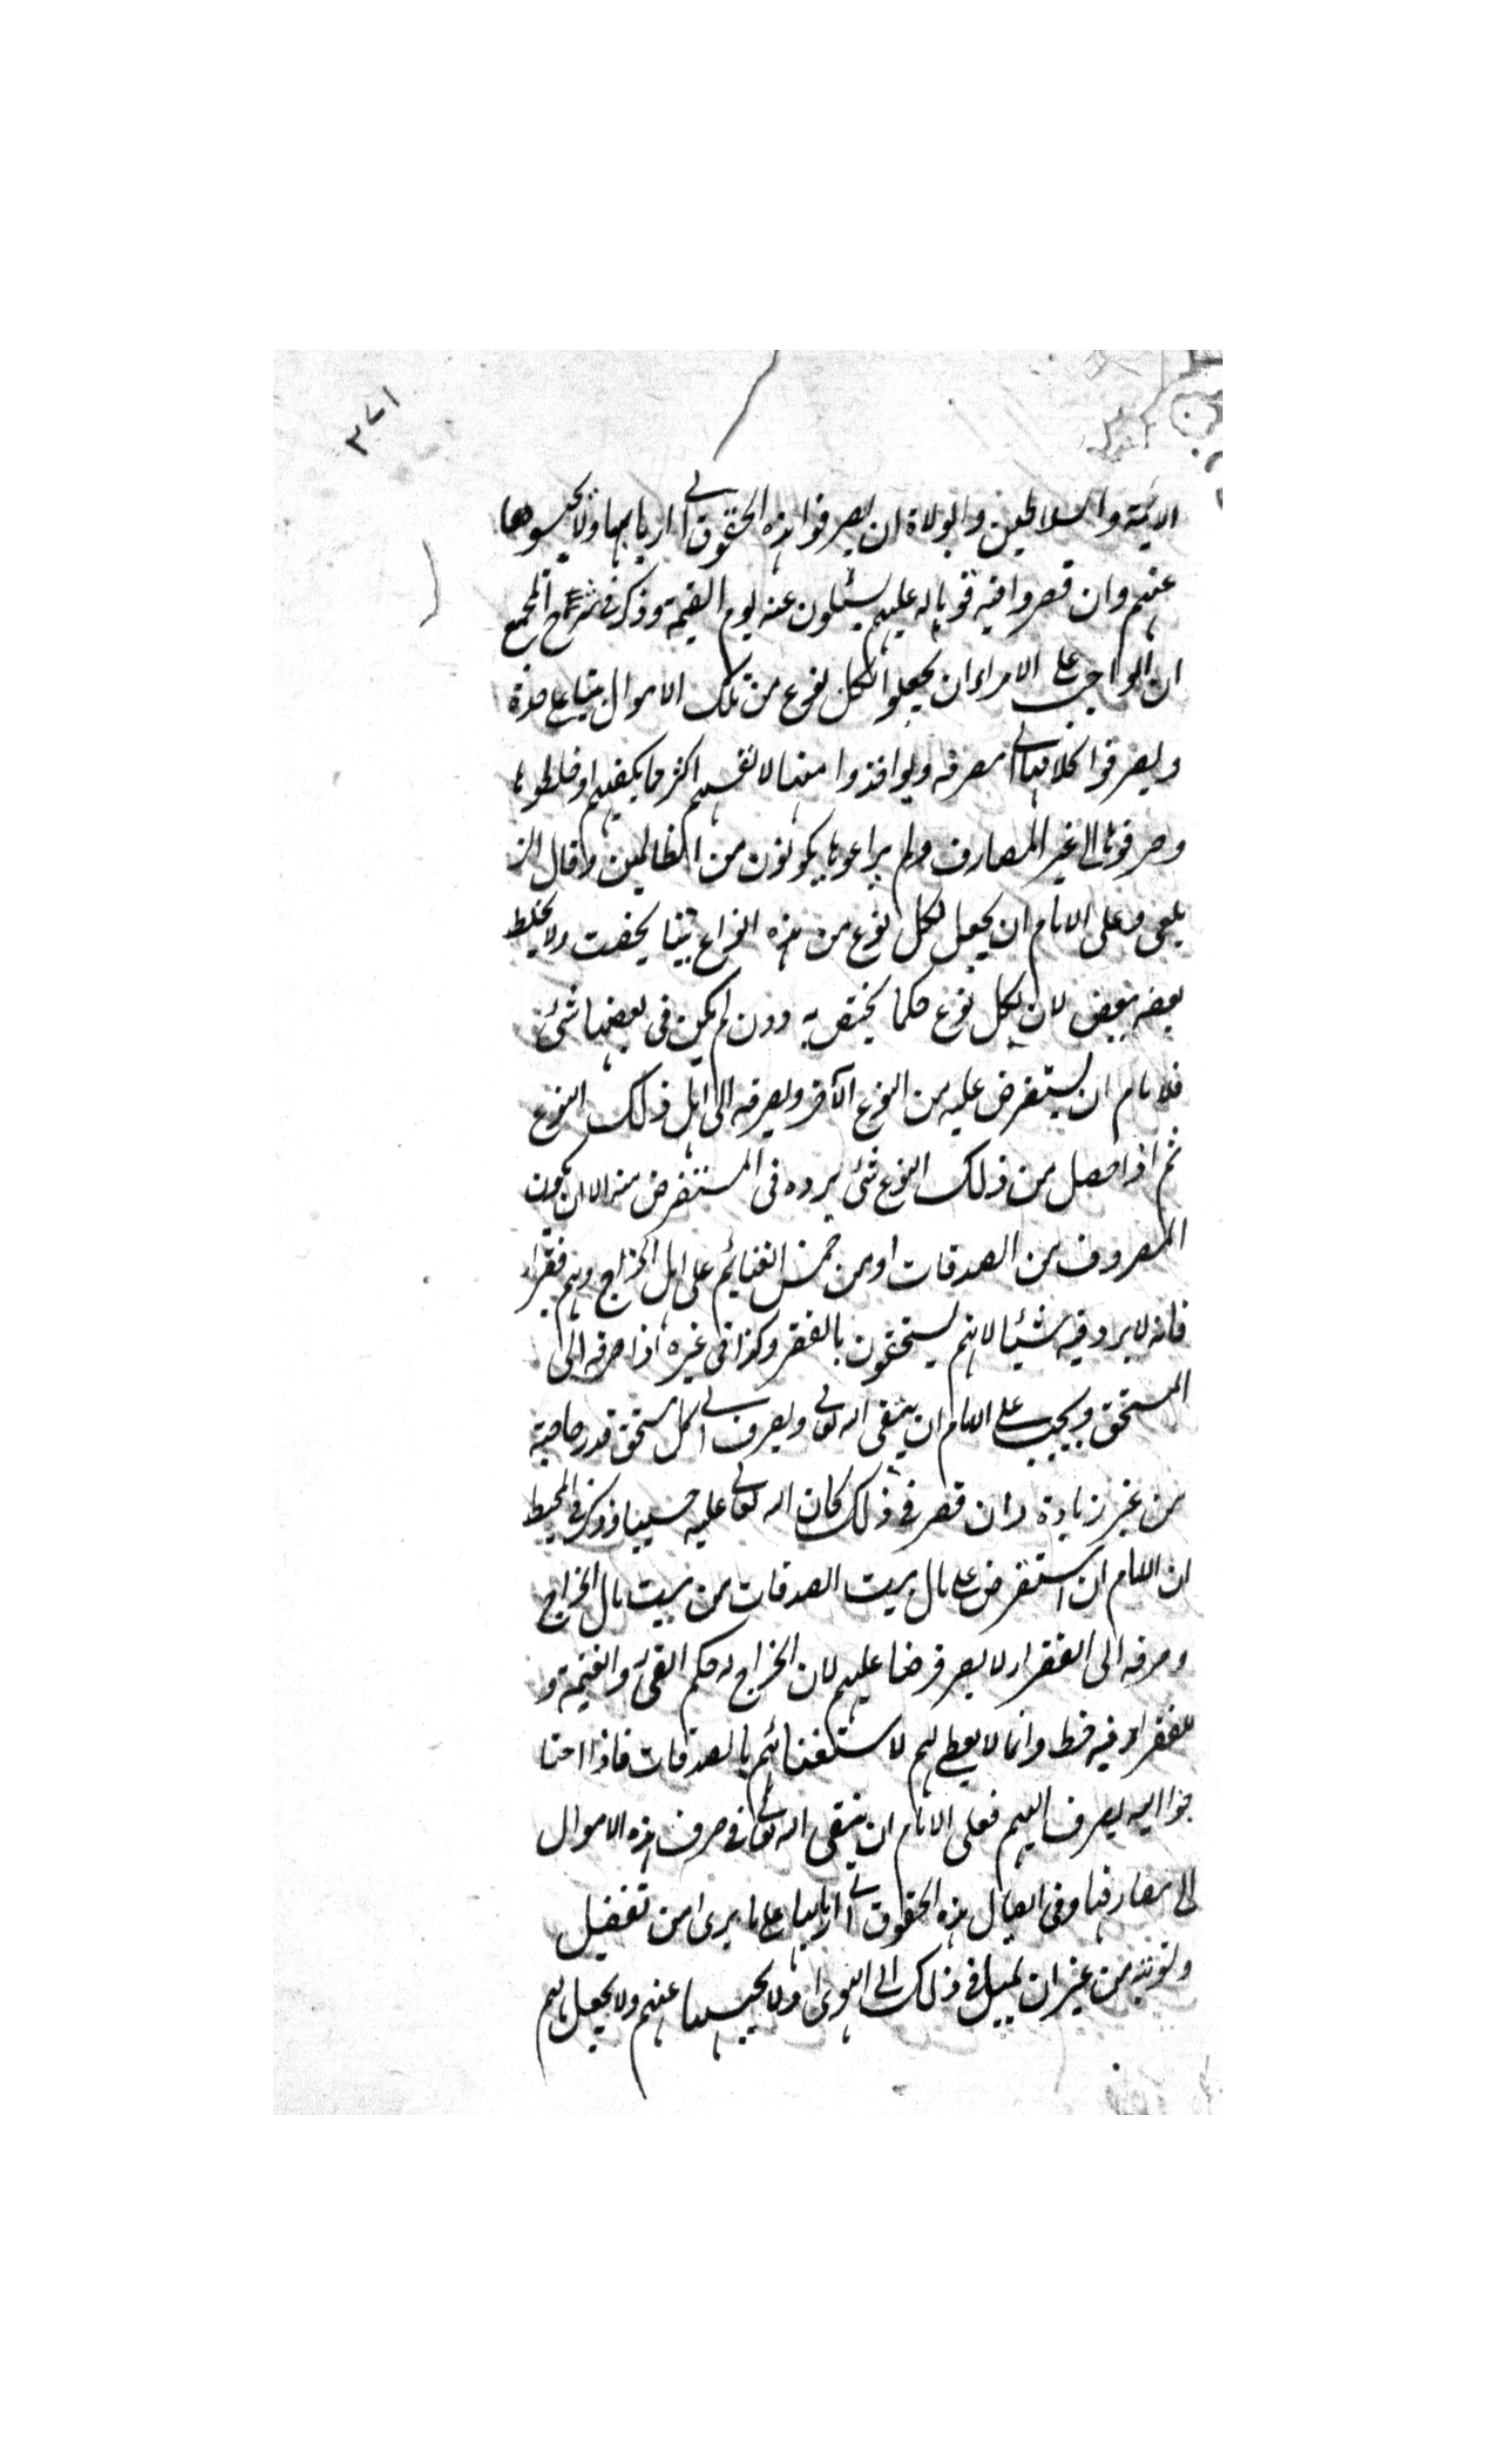 ٣٧١
الائمة والسلاطين والولاة ان يصرفوا هذه الحقوق الى اربابها ولا يحبسوها
عنهم وان قصروا فيه فوباله عليهم يسئلون عنه يوم القيمة وذكر فى شرح المجمع
ان الواجب على الامراء ان يجعلوا لكل نوع من تلك الاموال بيتا على حدة
ويصرفوا كلا منها الى مصرفه ولو اخذوا منها لانفسهم اكثر مما يكفيهم او خلطوها
وصرفوها الى غير المصارف ولم يراعوها يكونون من الظالمين وقال الز
يلعى وعلى الامام ان يجعل لكل نوع من هذه انواع بيتا يخصه ولا يخلط
بعضه ببعض لان لكل نوع حكما يختص به وان لم يكن فى بعضها شئ
فلامام ان يستقرض عليه من النوع الآخر ويصرفه الى اهل ذلك النوع
ثم اذا حصل من ذلك النوع شئ يرده فى المستقرض منه الا ان يكون
المصروف من الصدقات او من خمس الغنايم على اهل الخراج وهم فقراء
فانه لا يرد فيه شيئا لانهم يستحقون بالفقر وكذا فى غيره اذا صرفه الى
المستحق ويجب على الامام ان يتقى الله تعالى ويصرف الى كل مستحق قدر حاجته
من غير زيادة وان قصر فى ذلك كان الله تعالى عليه حسيبا وذكر فى المحيط
ان الامام ان استقرض على مال بيت الصدقات من بيت مال الخراج
وصرفه الى الفقراء لا يصير قرضا عليهم لان الخراج له حكم الفئ والغنيمة و
للفقراء فيه حظ وانما لا يعطى لهم لاستغنائهم بالصدقات فاذا احتا
جوا اليه يصرف اليهم فعلى الامام ان يتقى الله تعالى فى صرف هذه الاموال
الى مصارفها وفى ايصال هذه الحقوق الى اربابها على ما يرى من تفضيل
وتسوية من غير ان يميل فى ذلك الى الهوى ولا يحبسها عنهم ولا يجعل لهم